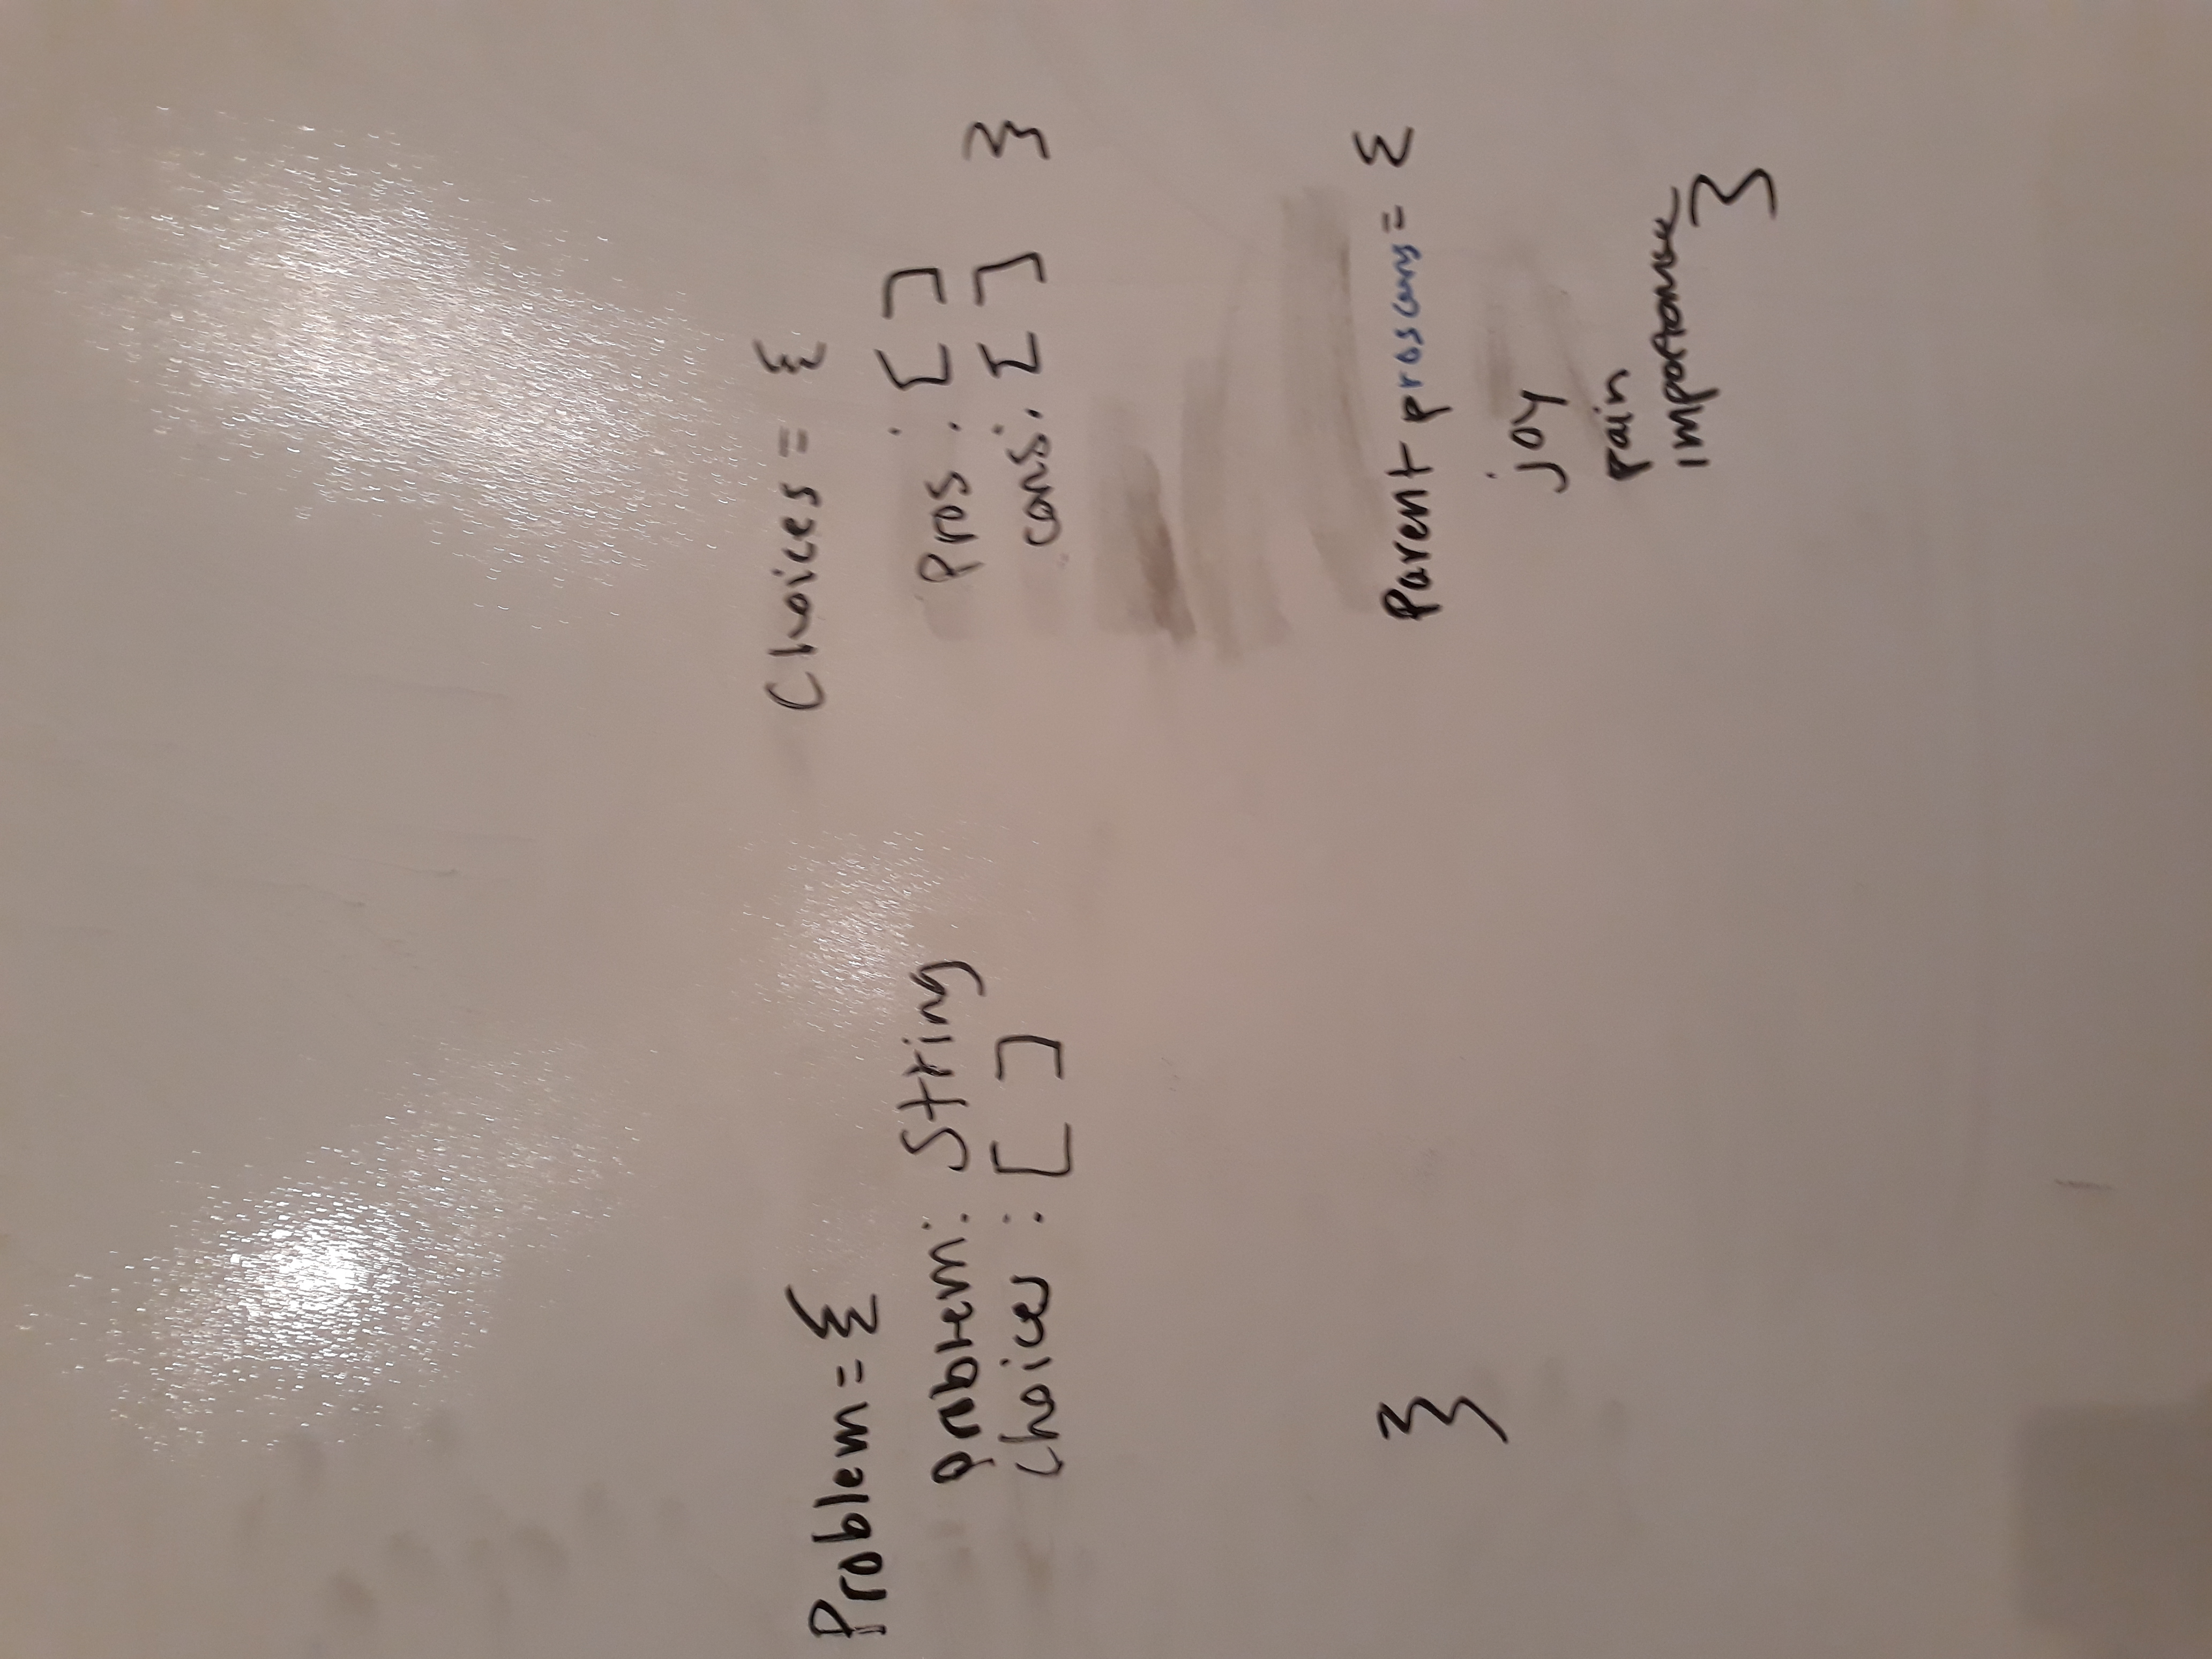 Problem = {
problem: String
choices : [ ]
}
Choices = {
Pros : [ ]
cons : [ ] }
Parent proscons = {
joy
pain
importance
}